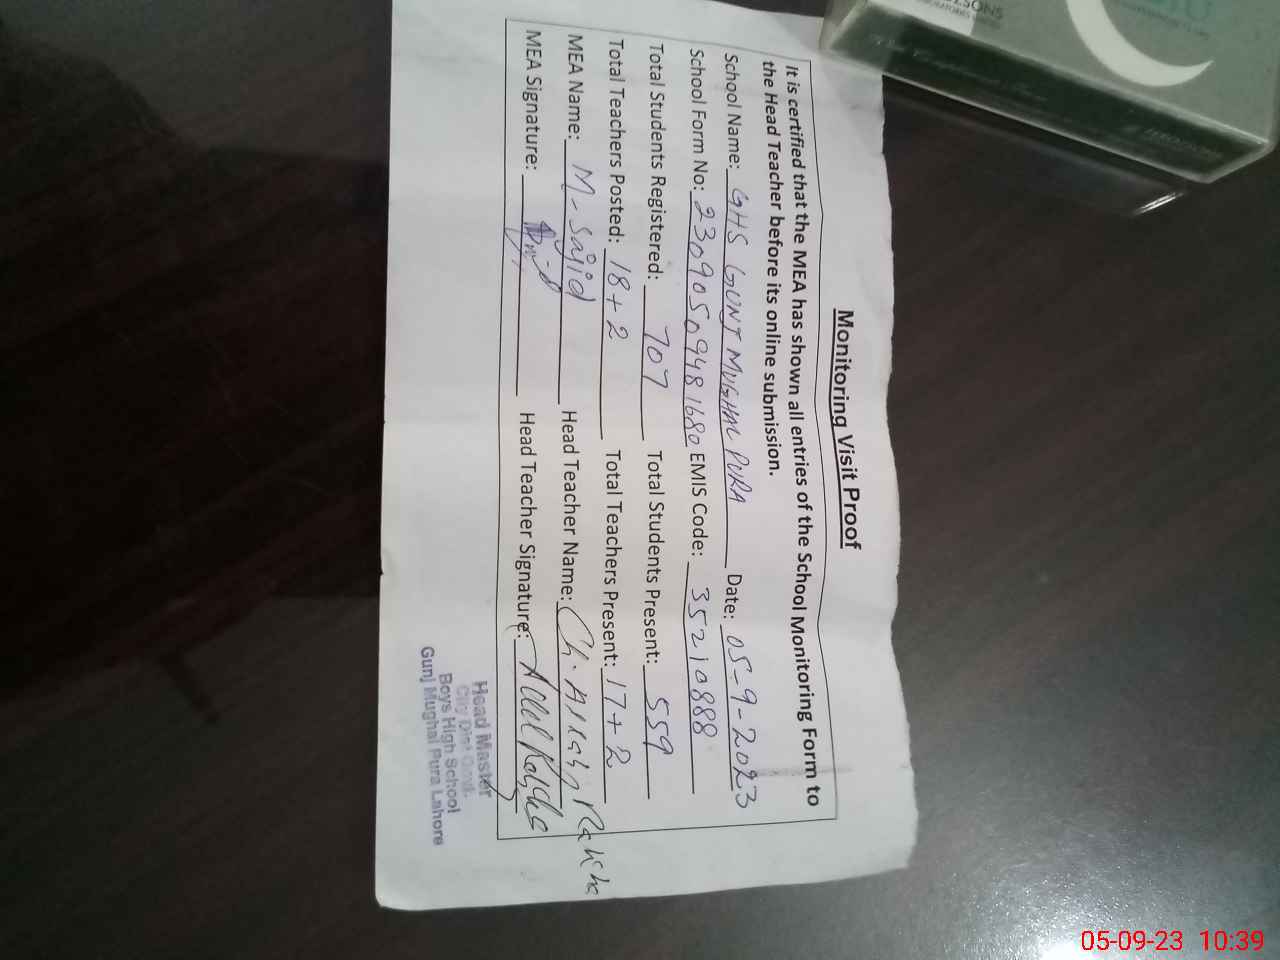 Monitoring Visit Proof
It is certified that the MEA has shown all entries of the School Monitoring Form to
the Head Teacher before its online submission.
School Name: GHS GUNJ MUGHAL PURA Date: 05-9-2023
School Form No: 23090509481680 EMIS Code: 35210888
Total Students Registered: 707 Total Students Present: 559
Total Teachers Posted: 18+2 Total Teachers Present: 17+2
MEA Name: M-Sajid Head Teacher Name: Ch.
MEA Signature: Head Teacher Signature:
Head Master
City Dist Govt.
Boys High School
Gunj Mughal Pura Lahore
05-09-23 10:39